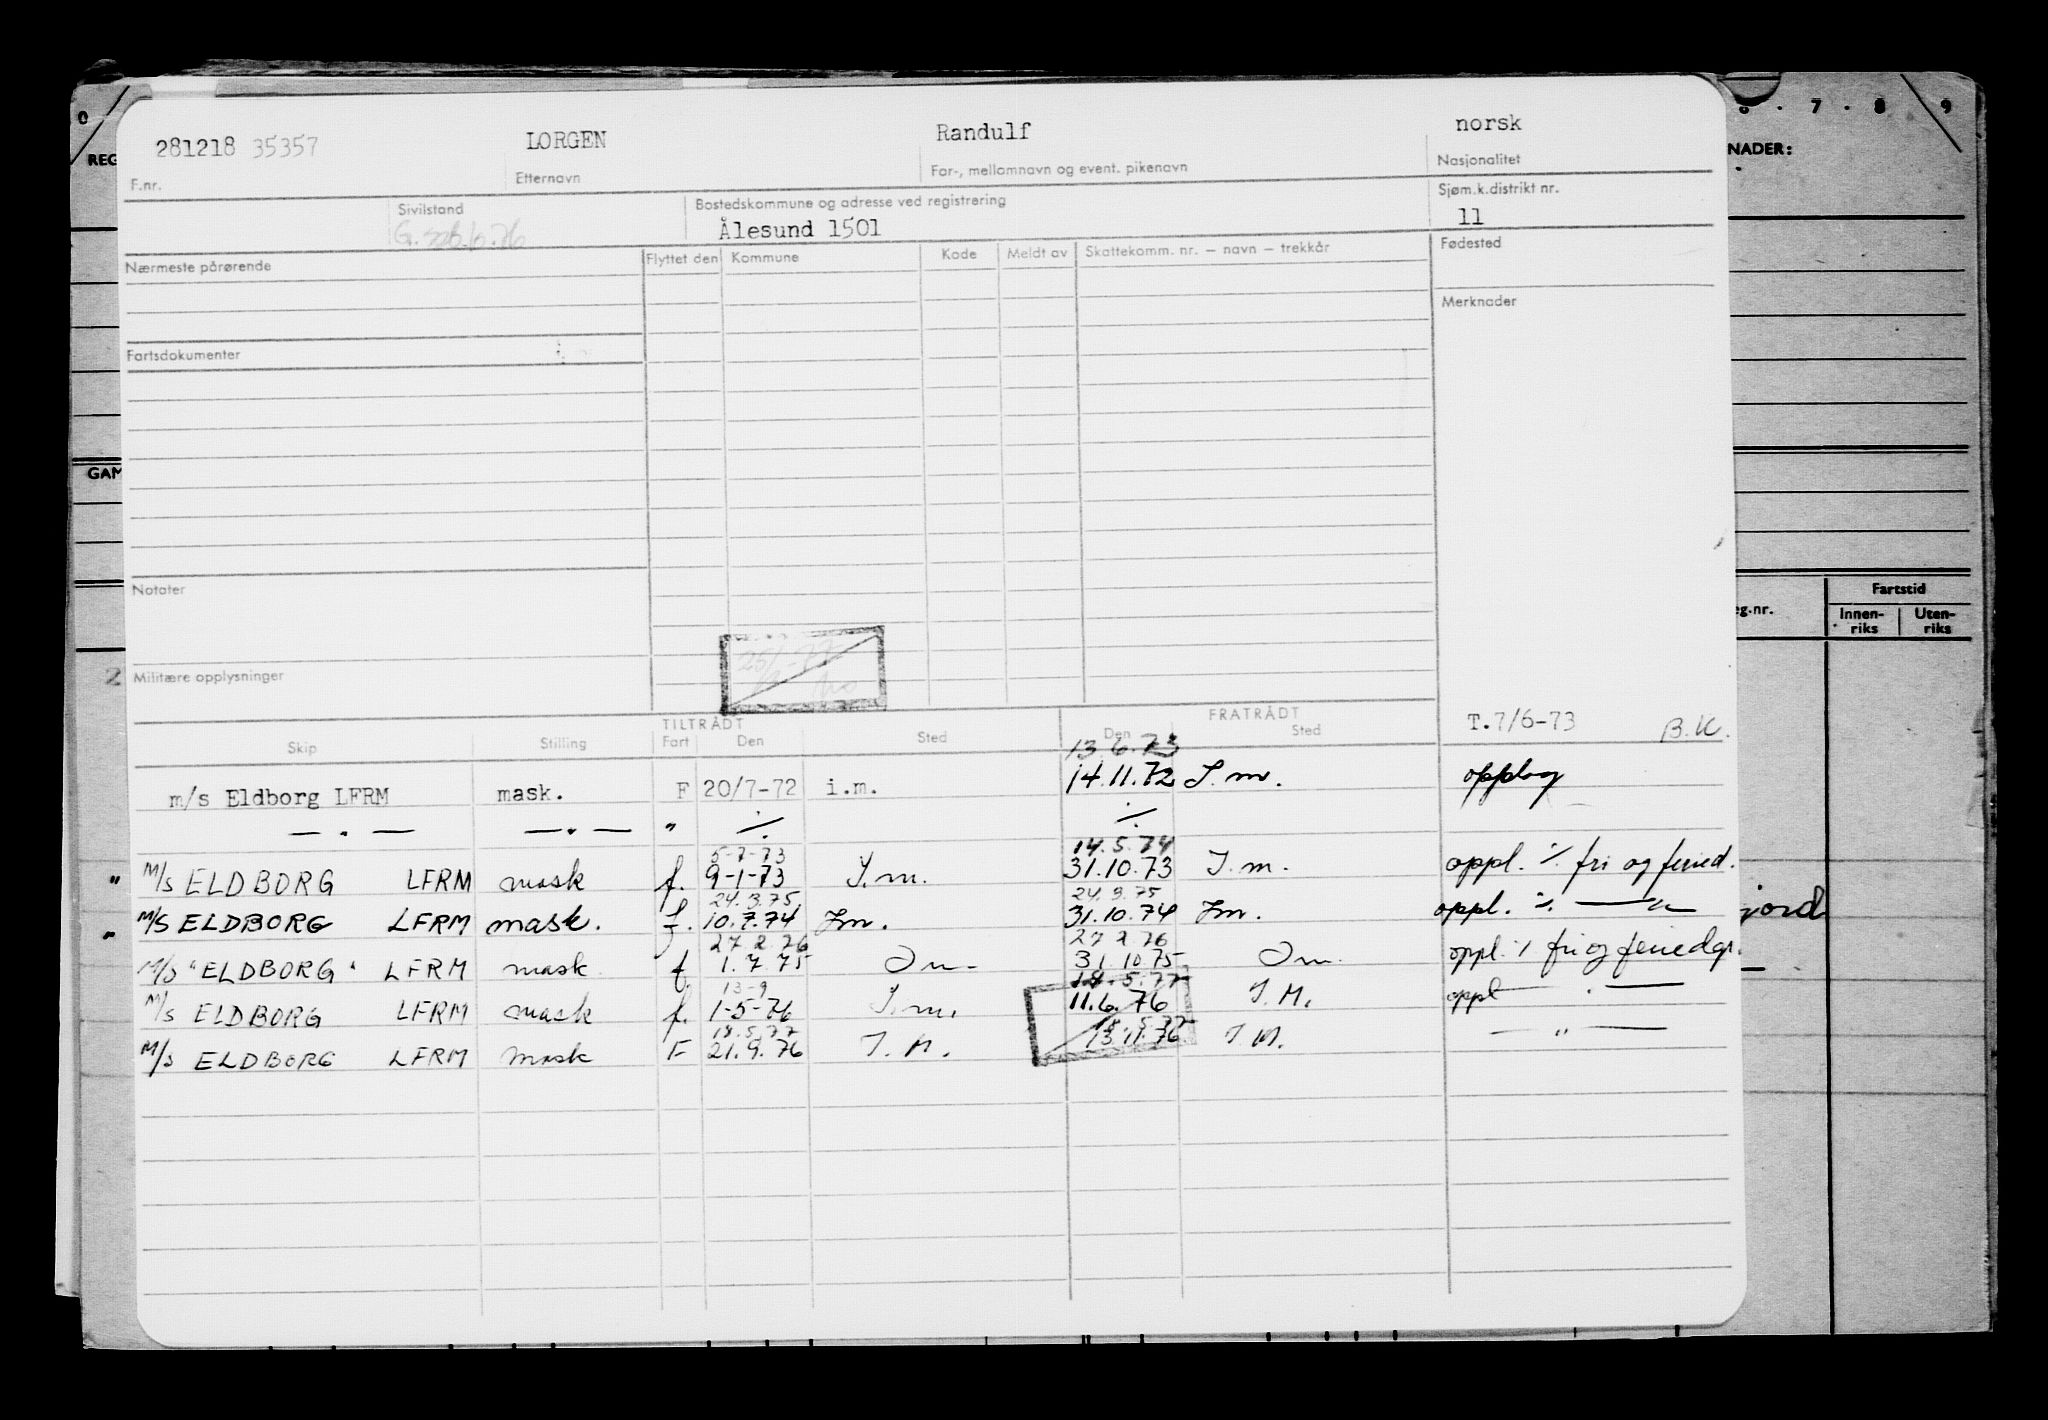 0 7 · 8 · 9
REG NADER:
281218 35357 LORGEN Randulf norsk
F.nr. Etternavn For-, mellomnavn og event. pikenavn Nasjonalitet
Sivilstand Bostedskommune og adresse ved registrering Sjøm.k.distrikt nr.
Ålesund 1501 11
Nærmeste pårørende Flyttet den Kommune Kode Meldt av Skattekomm. nr. – navn – trekkår Fødested
Merknader
Fartsdokumenter
GAM
Notater
eg.nr. Fartstid
Innen-riks Uten-riks
2 Militære opplysninger
TILTRÅDT FRATRÅDT T.7/6-73 B.K.
Skip Stilling Fart Den Sted Den Sted
13 6.73
m/s Eldborg LFRM mask. F 20/7-72 i.m. 14.11.72 I.m. opplag
— . — — . — " ./. ./.
5-7-73 14.5.74
" M/S ELDBORG LFRM mask f. 9-1-73 I.m. 31.10.73 I.m. oppl. ./. fri og feried.
24.3.75 24.3.75
" M/S ELDBORG LFRM mask. f. 10.7.74 Im. 31.10.74 Im. oppl. ./. — " — jord
27.2.76 27 2.76
M/S "ELDBORG" LFRM mask f. 1.7 75 Im 31.10.75 Im. oppl. ./. fri og feriedgr.
13-9 18.5.77
M/S ELDBORG LFRM mask f. 1-5-76 I.m. 11.6.76 I.M. oppl — " —
18.5.77 18.5.77
M/S ELDBORG LFRM mask F 21.9.76 I.M. 13.11.76 I M. — " —